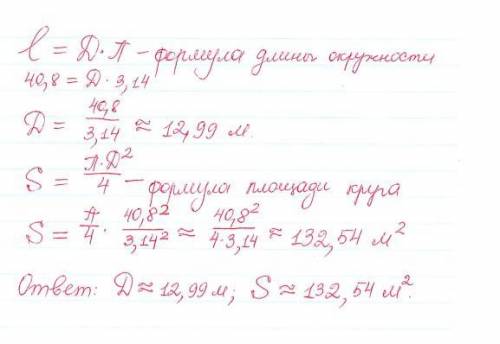 l = Д · П – формула длины окружности
40,8 = Д · 3,14
Д = 40,8/3,14 ≈ 12,99 м.
S = П·Д²/4 – формула площади круга
S = П/4 · 40,8²/3,14² ≈ 40,8²/4·3,14 ≈ 132,54 м²
Ответ: Д ≈ 12,99 м; S ≈ 132,54 м².